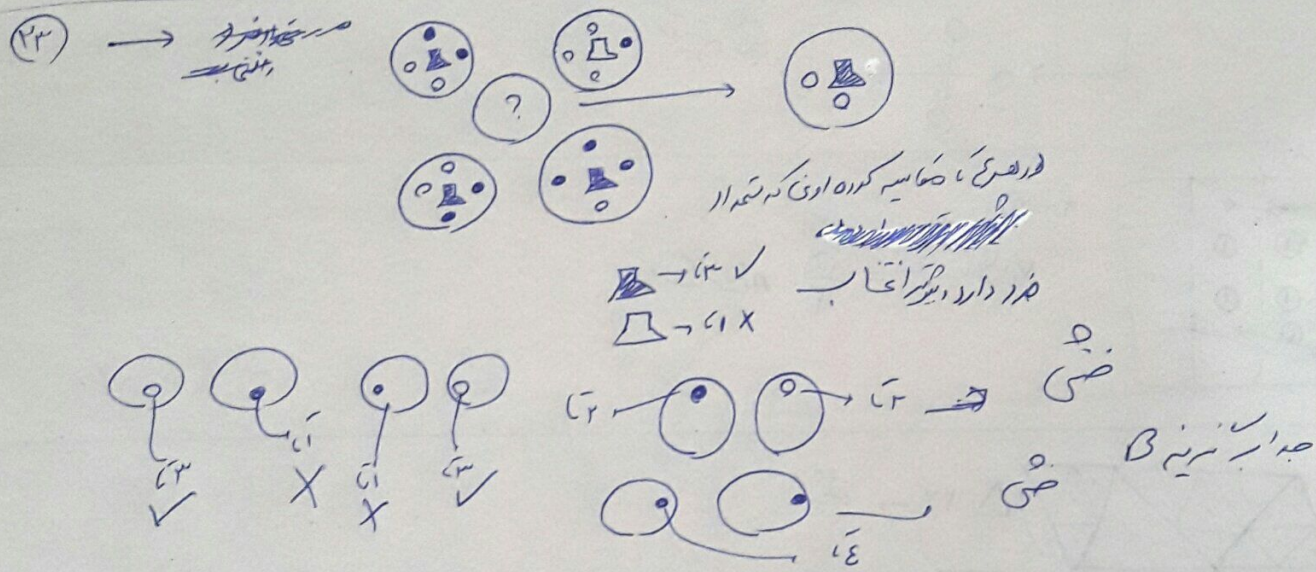 ۲۳
?
در هر ۴ تا مقایسه کرده اونی که تعداد
۳ تا ✓
بیشتر انتخاب
۱ تا X
۳ تا ✓
۱ تا X
۱ تا X
۳ تا ✓
۲ تا
۲ تا
خنثی
۴ تا
خنثی
جواب گزینه B